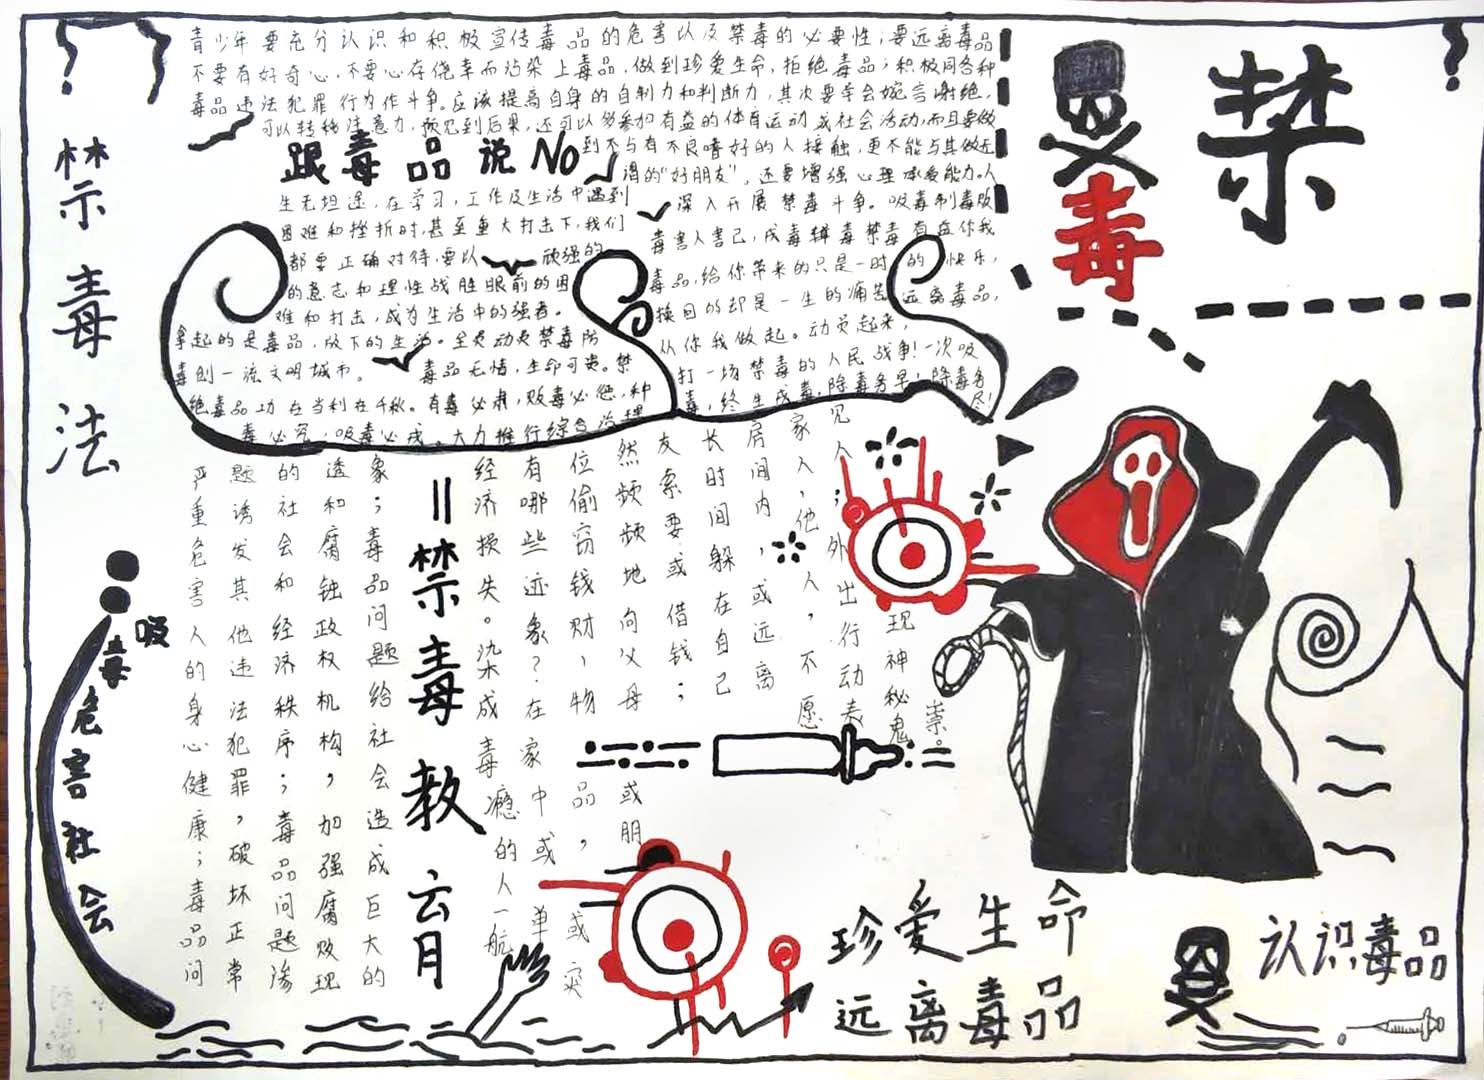 禁
毒
禁毒法
青少年要充分认识和积极宣传毒品的危害以及禁毒的必要性；要远离毒品
不要有好奇心，不要心存侥幸而沾染上毒品，做到珍爱生命，拒绝毒品；积极同各种
毒品违法犯罪行为作斗争。应该提高自身的自制力和判断力，其次要幸会婉言谢绝，
可以转移注意力，预见到后果，还可以多参加有益的体育运动或社会活动，而且要做
跟毒品说No
到不与有不良嗜好的人接触，更不能与其做无
谓的“好朋友”，还要增强心理承受能力。人
生无坦途，在学习，工作及生活中遇到
困难和挫折时，甚至重大打击下，我们
都要正确对待，要以顽强的
的意志和理性战胜眼前的困
难和打击，成为生活中的强者。
拿起的是毒品，放下的生活。全员动员禁毒防
毒创一流文明城市。毒品无情，生命可贵。禁
绝毒品功在当利在千秋。有毒必肃，贩毒必惩，种
毒必究，吸毒必戒。大力推行综合治理
深入开展禁毒斗争。吸毒制毒贩
毒害人害己，戒毒辑毒禁毒有益你我
毒品，给你带来的只是一时的快乐，
换回的却是一生的痛苦远离毒品，
从你我做起。动员起来，
打一场禁毒的人民战争！一次吸
毒，终生戒毒，除毒务早！除毒务
尽！
吸毒危害社会
严重危害人的身心健康；毒品问
题诱发其他违法犯罪，破坏正常
的社会和经济秩序；毒品问题渗
透和腐蚀政权机构，加强腐败现
象；毒品问题给社会造成巨大的
=禁毒教云月
经济损失。染成毒瘾的人一航
有哪些迹象？在家中或单
位偷窃钱财、物品，或突
然频频地向父母或朋
友索要或借钱；
长时间躲在自己
房间内，或远离
家人、他人，不愿
见人；外出行动表
现神秘鬼
祟。
珍爱生命
远离毒品
认识毒品